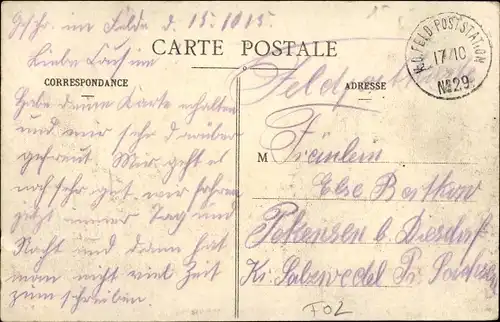 Geschr. im Felde d. 15.10.15
Liebe Cousine
CARTE POSTALE
CORRESPONDANCE
ADRESSE
Habe deine Karte erhalten
und mir sehr darüber
gefreut Mir geht es
noch sehr gut wir fahren
jetzt immer Tag und
Nacht und dann hat
man nicht viel Zeit
zum schreiben.
K.D. FELD-POSTSTATION
17/10
№29
Feldpostkarte
M Fräulein
Else
b. Diesdorf
Kr. Salzwedel Pr. Sachsen
FOL